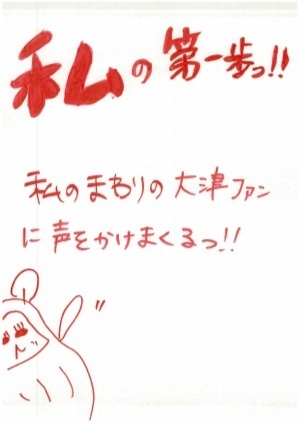 私の第一歩っ!!
私のまわりの大津ファン
に声をかけまくるっ!!